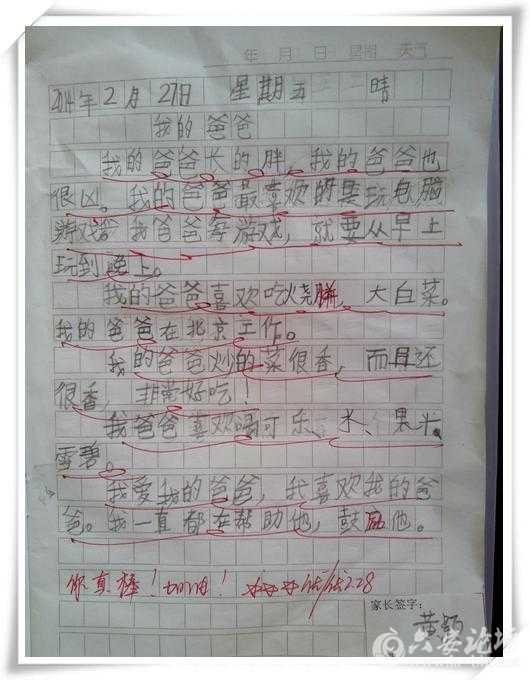 年 月 日 星期 天气
2014年2月27日 星期五 晴
我的爸爸
我的爸爸长的胖，我的爸爸也
很凶。我的爸爸最喜欢的是玩电脑
游戏。我爸爸每游戏，就要从早上
玩到晚上。
我的爸爸喜欢吃烧饼，大白菜。
我的爸爸在北京工作。
我的爸爸炒的菜很香，而且还
很香，非常好吃！
我爸爸喜欢喝可乐、水、果汁。
雪碧。
我爱我的爸爸，我喜欢我的爸
爸。我一直都在帮助他，鼓励他。
你真棒！加油！ 2.28
家长签字：
黄
六安论坛